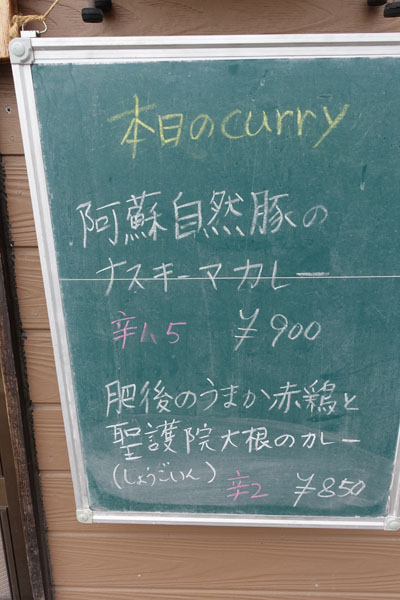 本日のcurry
阿蘇自然豚の
ナスキーマカレー
辛1.5 ¥900
肥後のうまか赤鶏と
聖護院大根のカレー
(しょうごいん) 辛2 ¥850